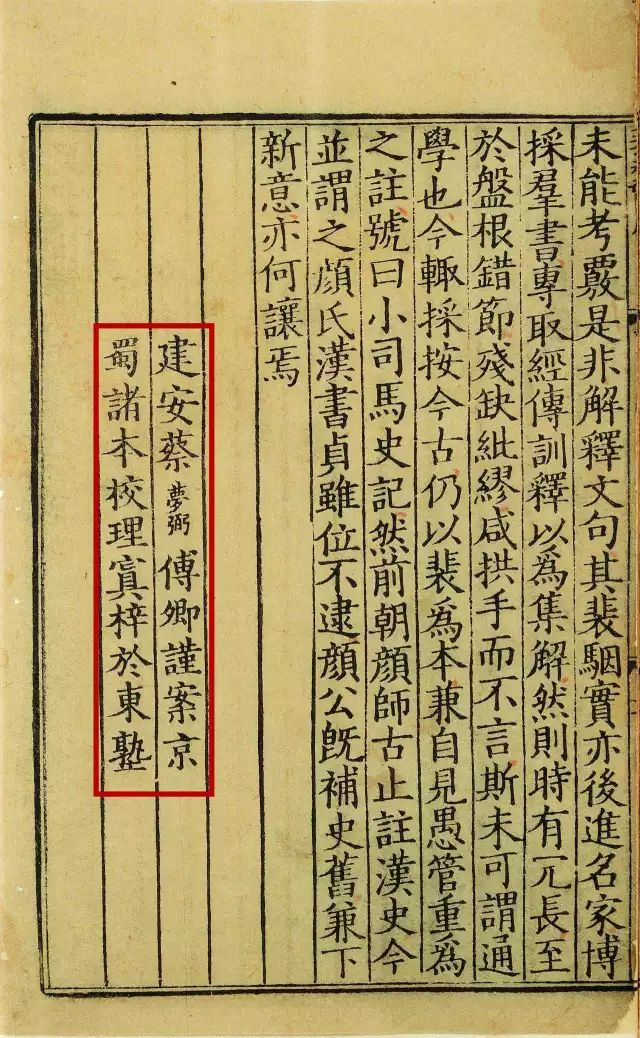 未能考覈是非解釋文句其裴駰實亦後進名家博
採羣書專取經傳訓釋以爲集解然則時有冗長至
於盤根錯節殘缺紕繆咸拱手而不言斯未可謂通
學也今輙採按今古仍以裴爲本兼自見愚管重爲
之註號曰小司馬史記然前朝顔師古止註漢史今
並謂之顔氏漢書貞雖位不逮顔公旣補史舊兼下
新意亦何讓焉
建安蔡夢弼傅卿謹案京
蜀諸本校理寘梓於東塾